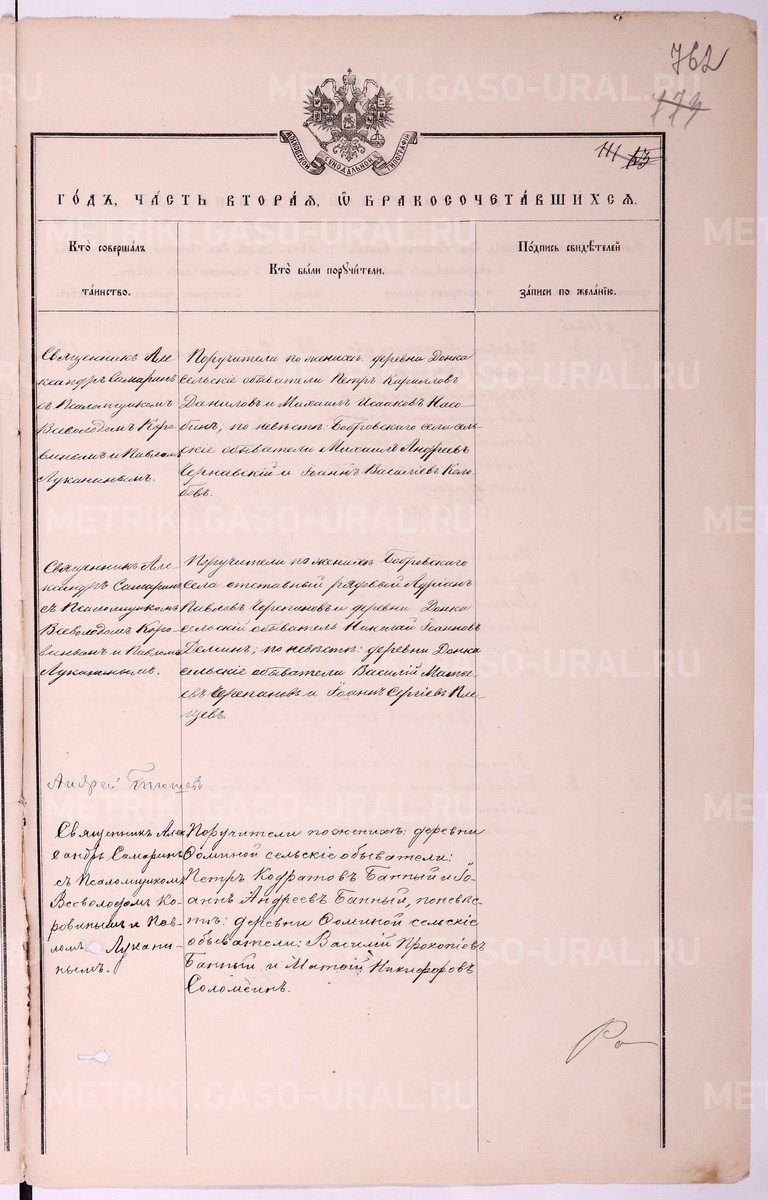 762
777
111 113
МОСКОВСКОЙ СѴНОДАЛЬНОЙ ТИПОГРАФІИ
ГОДЪ, ЧАСТЬ ВТОРАЯ, Ѡ БРАКОСОЧЕТАВШИХСЯ.
Кто совершалъ
таинство.
Кто были поручители.
Подпись свидѣтелей
записи по желанію.
Священникъ Але
ксандръ Самаринъ
съ Псаломщикомъ
Всеволодомъ Коро
винымъ и Павломъ
Луканинымъ.
Поручители по женихѣ: деревни Донка
сельскіе обыватели Петръ Кирилловъ
Даниловъ и Михаилъ Исааковъ Насо
бинъ, по невѣстѣ: Бобровскаго села сель
скіе обыватели Михаилъ Андреевъ
Чернавскій и Іоаннъ Василіевъ Коло
бовъ.
Священникъ Але
ксандръ Самаринъ
съ Псаломщикомъ
Всеволодомъ Коро
винымъ и Павломъ
Луканинымъ.
Поручители по женихѣ: Бобровскаго
села отставный рядовый Адріанъ
Павловъ Черепановъ и деревни Донка
сельскій обыватель Николай Іоанновъ
Деминъ; по невѣстѣ: деревни Донка
сельскіе обыватели Василій Матѳі
евъ Черепановъ и Іоаннъ Сергіевъ Пле
щевъ.
Андрей
Священникъ Алек
сандръ Самаринъ
съ Псаломщикомъ
Всеволодомъ Ко
ровинымъ и Пав
ломъ Лукани
нымъ.
Поручители по женихѣ: деревни
Ѳоминой сельскіе обыватели:
Петръ Кодратовъ Банный и Іо
аннъ Андреевъ Банный, по невѣс
тѣ: деревни Ѳоминой сельскіе
обыватели: Василій Прокопіевъ
Банный и Матѳій Никифоровъ
Соломеинъ.
METRIKI.GASO-URAL.RU